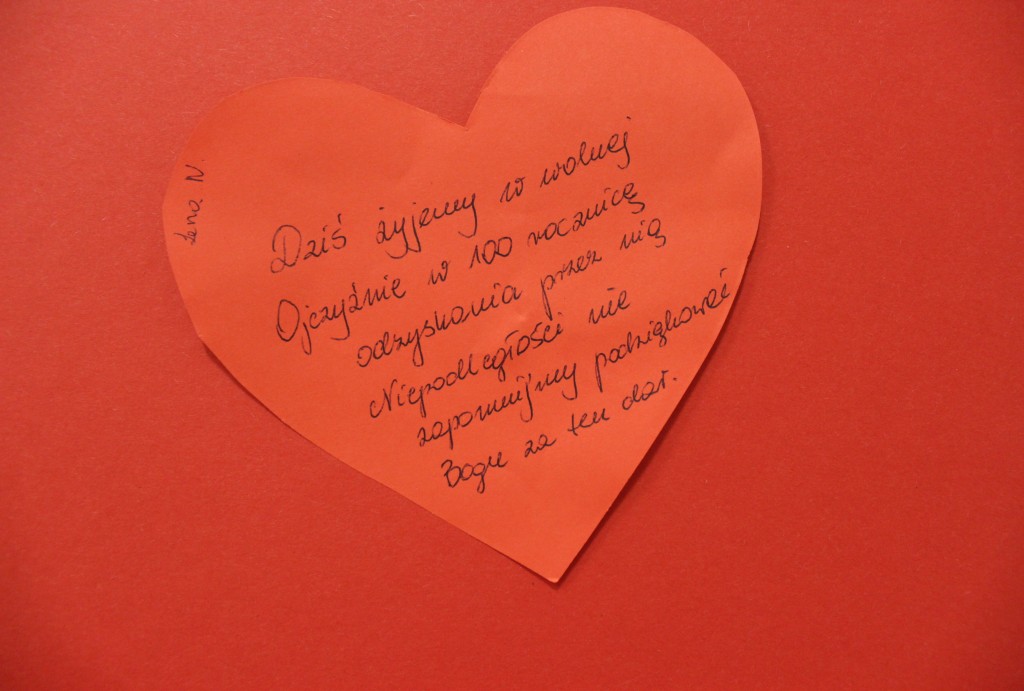 Lena N.
Dziś żyjemy w wolnej
Ojczyźnie w 100 rocznicę
odzyskania przez nią
Niepodległości nie
zapomnijmy podziękować
Bogu za ten dar.